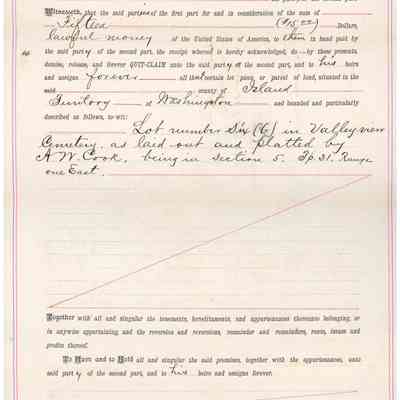 Witnesseth, that the said parties of the first part for and in consideration of the sum of
Fifteen ($15.00) Dollars,
lawful money of the United States of America, to them in hand paid by
the said party of the second part, the receipt whereof is hereby acknowledged, do by these presents,
demise, release, and forever QUIT-CLAIM unto the said party of the second part, and to his heirs
and assigns forever all that certain lot piece, or parcel of land, situated in the
said county of Island
Territory of Washington and bounded and particularly
described as follows, to wit: Lot number Six (6) in Valley view
Cemetery, as laid out and platted by
A. W. Cook, being in section 5. Tp. 31. Range
one East.
Together with all and singular the tenements, hereditaments, and appurtenances thereunto belonging, or
in anywise appertaining, and the reversion and reversions, remainder and remainders, rents, issues and
profits thereof.
To Have and to Hold all and singular the said premises, together with the appurtenances, unto
said party of the second part, and to his heirs and assigns forever.